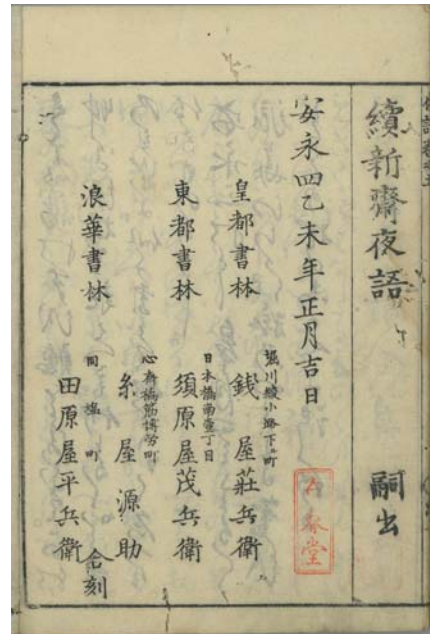 續新齋夜語 嗣出
安永四乙未年正月吉日
皇都書林 堀川綾小路下ル町 錢屋莊兵衛
東都書林 日本橋南壹丁目 須原屋茂兵衛
心斎橋筋博労町 糸屋源助
浪華書林 同塩町 田原屋平兵衛 合刻